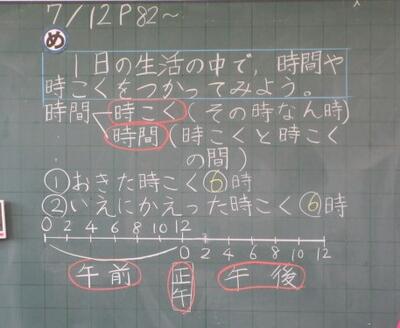 7/12 P82~
め
1日の生活の中で、時間や
時こくをつかってみよう。
時間 時こく(その時なん時)
時間(時こくと時こく
の間)
①おきた時こく⑥時
②いえにかえった時こく⑥時
0 2 4 6 8 10 12
0 2 4 6 8 10 12
午前 正午 午後